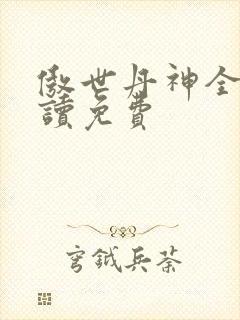 傲世丹神全
讀免費
穹鉞兵荼